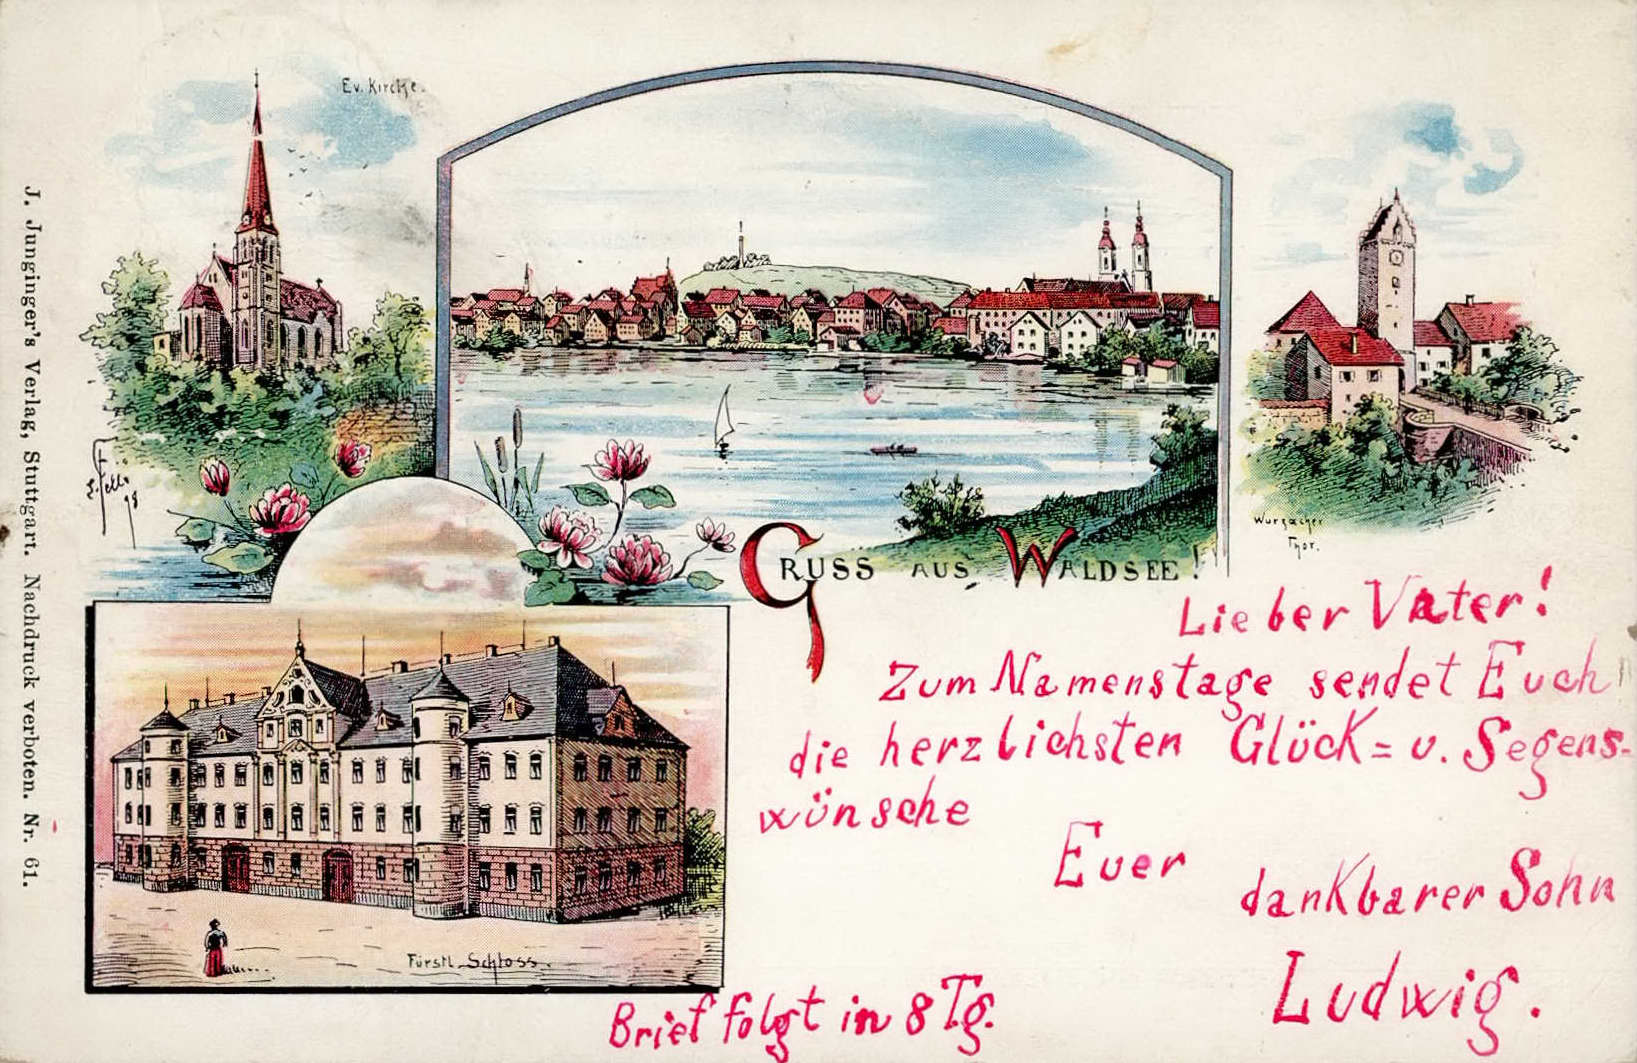 Ev. Kirche.
J. Junginger's Verlag, Stuttgart. Nachdruck verboten. Nr. 61.
98
Wurzacher
Thor.
GRUSS AUS WALDSEE!
Lieber Vater!
Zum Namenstage sendet Euch
die herzlichsten Glück= u. Segens-
wünsche
Euer
dankbarer Sohn
Ludwig.
Fürstl. Schloss.
Brief folgt in 8 Tg.